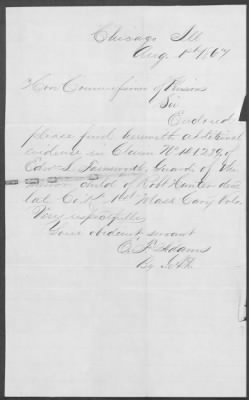 Chicago Ill
Aug 1st 1867
Hon Commissioner of Pensions
Sir
Enclosed
please find herewith additional
evidence in Claim No 141.239 of
Edw S. Farnsworth, Guard. of the
minor child of Robt Hunter decd
late Co. 1st Mass Cavy Vols.
Very respectfully
Your obedient servant
C. F. Adams
By